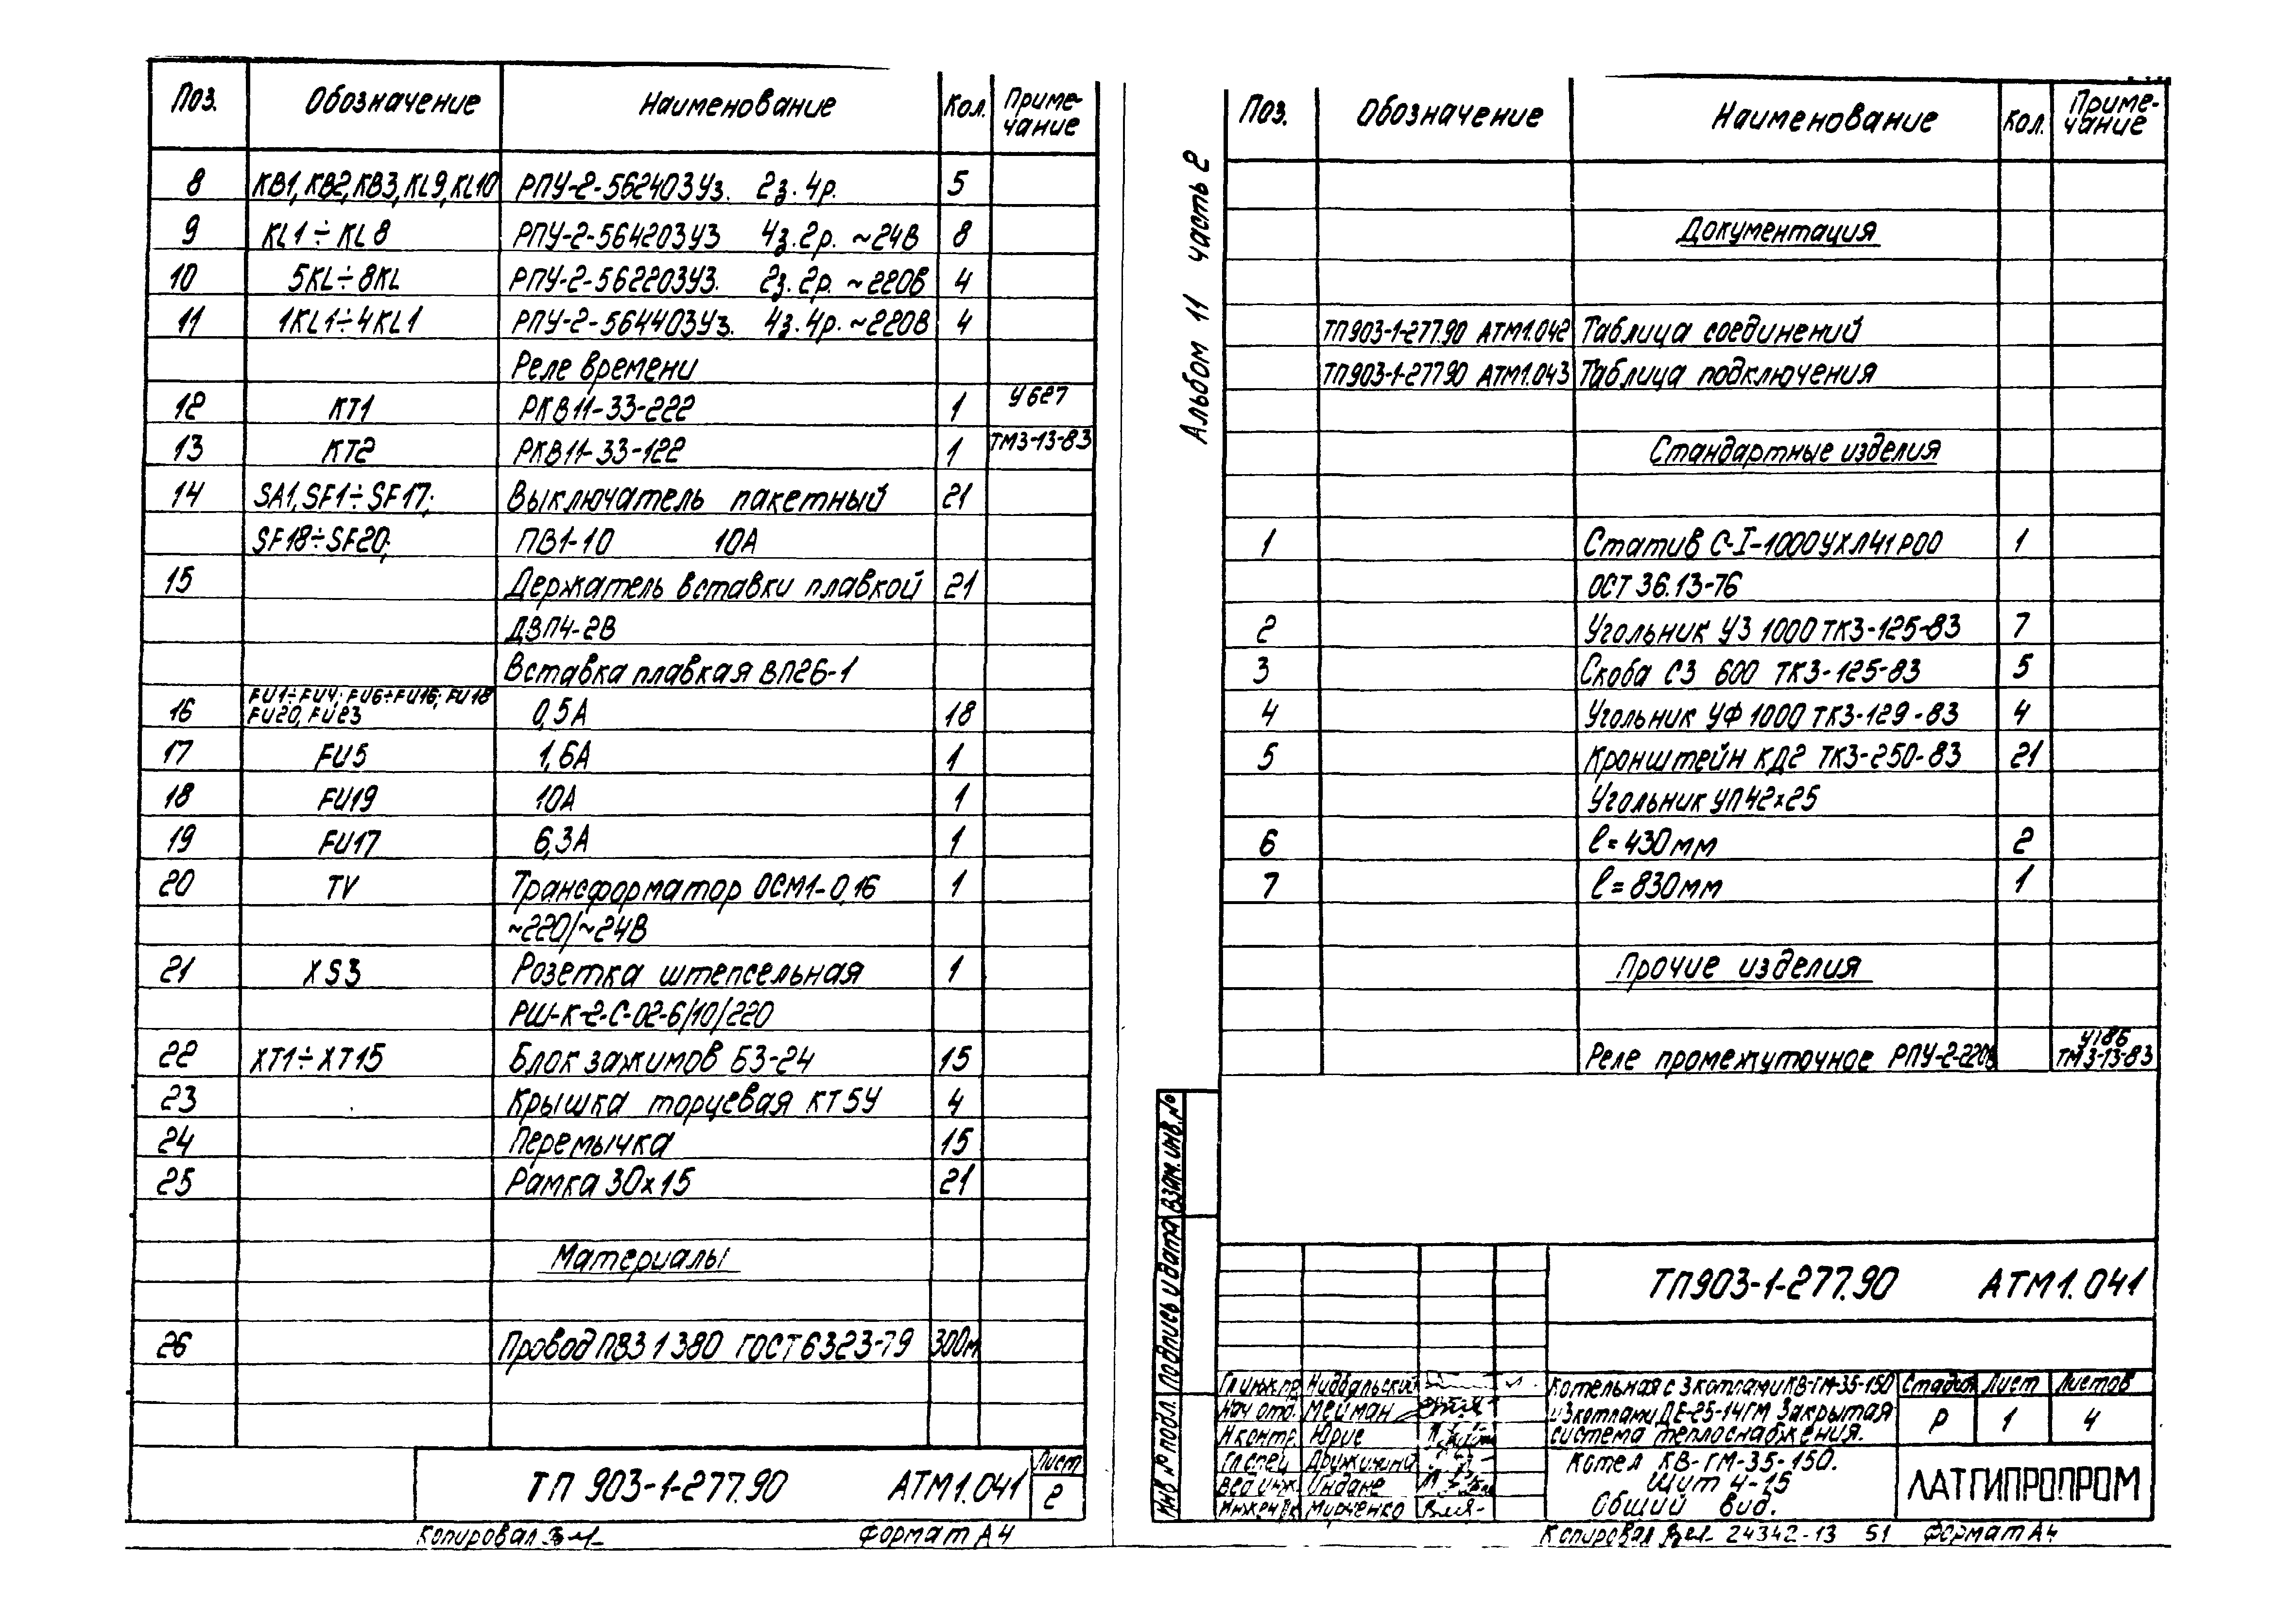 Поз. Обозначение Наименование Кол. Приме-
чание
8 КВ1, КВ2, КВ3, KL9, KL10 РПУ-2-562403У3. 2з. 4р. 5
9 KL1÷KL8 РПУ-2-564203У3 4з. 2р. ~24В 8
10 5KL÷8KL РПУ-2-562203У3. 2з. 2р. ~220В 4
11 1KL1÷4KL1 РПУ-2-564403У3. 4з. 4р. ~220В 4
Реле времени
12 КТ1 РКВ11-33-222 1 У627
13 КТ2 РКВ11-33-122 1 ТМ3-13-83
14 SA1, SF1÷SF17; Выключатель пакетный 21
SF18÷SF20; ПВ1-10 10А
15 Держатель вставки плавкой 21
ДВП4-2В
Вставка плавкая ВП26-1
FU1÷FU4; FU6÷FU16; FU18
16 FU20, FU23 0,5А 18
17 FU5 1,6А 1
18 FU19 10А 1
19 FU17 6,3А 1
20 TV Трансформатор ОСМ1-0,16 1
~220/~24В
21 XS3 Розетка штепсельная 1
РШ-К-2-С-02-6/10/220
22 ХТ1÷ХТ15 Блок зажимов БЗ-24 15
23 Крышка торцевая КТ5У 4
24 Перемычка 15
25 Рамка 30х15 21
Материалы
26 Провод ПВ3 1 380 ГОСТ 6323-79 300м
ТП 903-1-277.90 АТМ1.041 Лист
2
Копировал Формат А4
Альбом 11 часть 2
Поз. Обозначение Наименование Кол. Приме-
чание
Документация
ТП903-1-277.90 АТМ1.042 Таблица соединений
ТП903-1-277.90 АТМ1.043 Таблица подключения
Стандартные изделия
1 Статив С-I-1000УХЛ41Р00 1
ОСТ 36.13-76
2 Угольник УЗ 1000 ТК3-125-83 7
3 Скоба С3 600 ТК3-125-83 5
4 Угольник УФ 1000 ТК3-129-83 4
5 Кронштейн КД2 ТК3-250-83 21
Угольник УП 42х25
6 ℓ=430мм 2
7 ℓ=830мм 1
Прочие изделия
Реле промежуточное РПУ-2-220В У186
ТМ3-13-83
Инв № подл. Подпись и дата Взам. инв. №
ТП903-1-277.90 АТМ1.041
Гл инж пр Нидбальский
Нач отд. Мейман
Н контр. Юрие
Гл спец Дружинина
Вед инж. Индане
Инжен Iк Мурченко
Котельная с 3 котлами КВ-ГМ-35-150
и 3 котлами ДЕ-25-14ГМ Закрытая
система теплоснабжения.
Стадия Лист Листов
Р 1 4
Котел КВ-ГМ-35-150.
Щит 4-15
Общий вид.
ЛАТГИПРОПРОМ
Копировал 24342-13 51 Формат А4